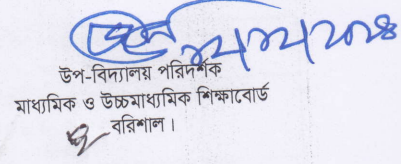 উপ-বিদ্যালয় পরিদর্শক
মাধ্যমিক ও উচ্চমাধ্যমিক শিক্ষাবোর্ড
বরিশাল ।